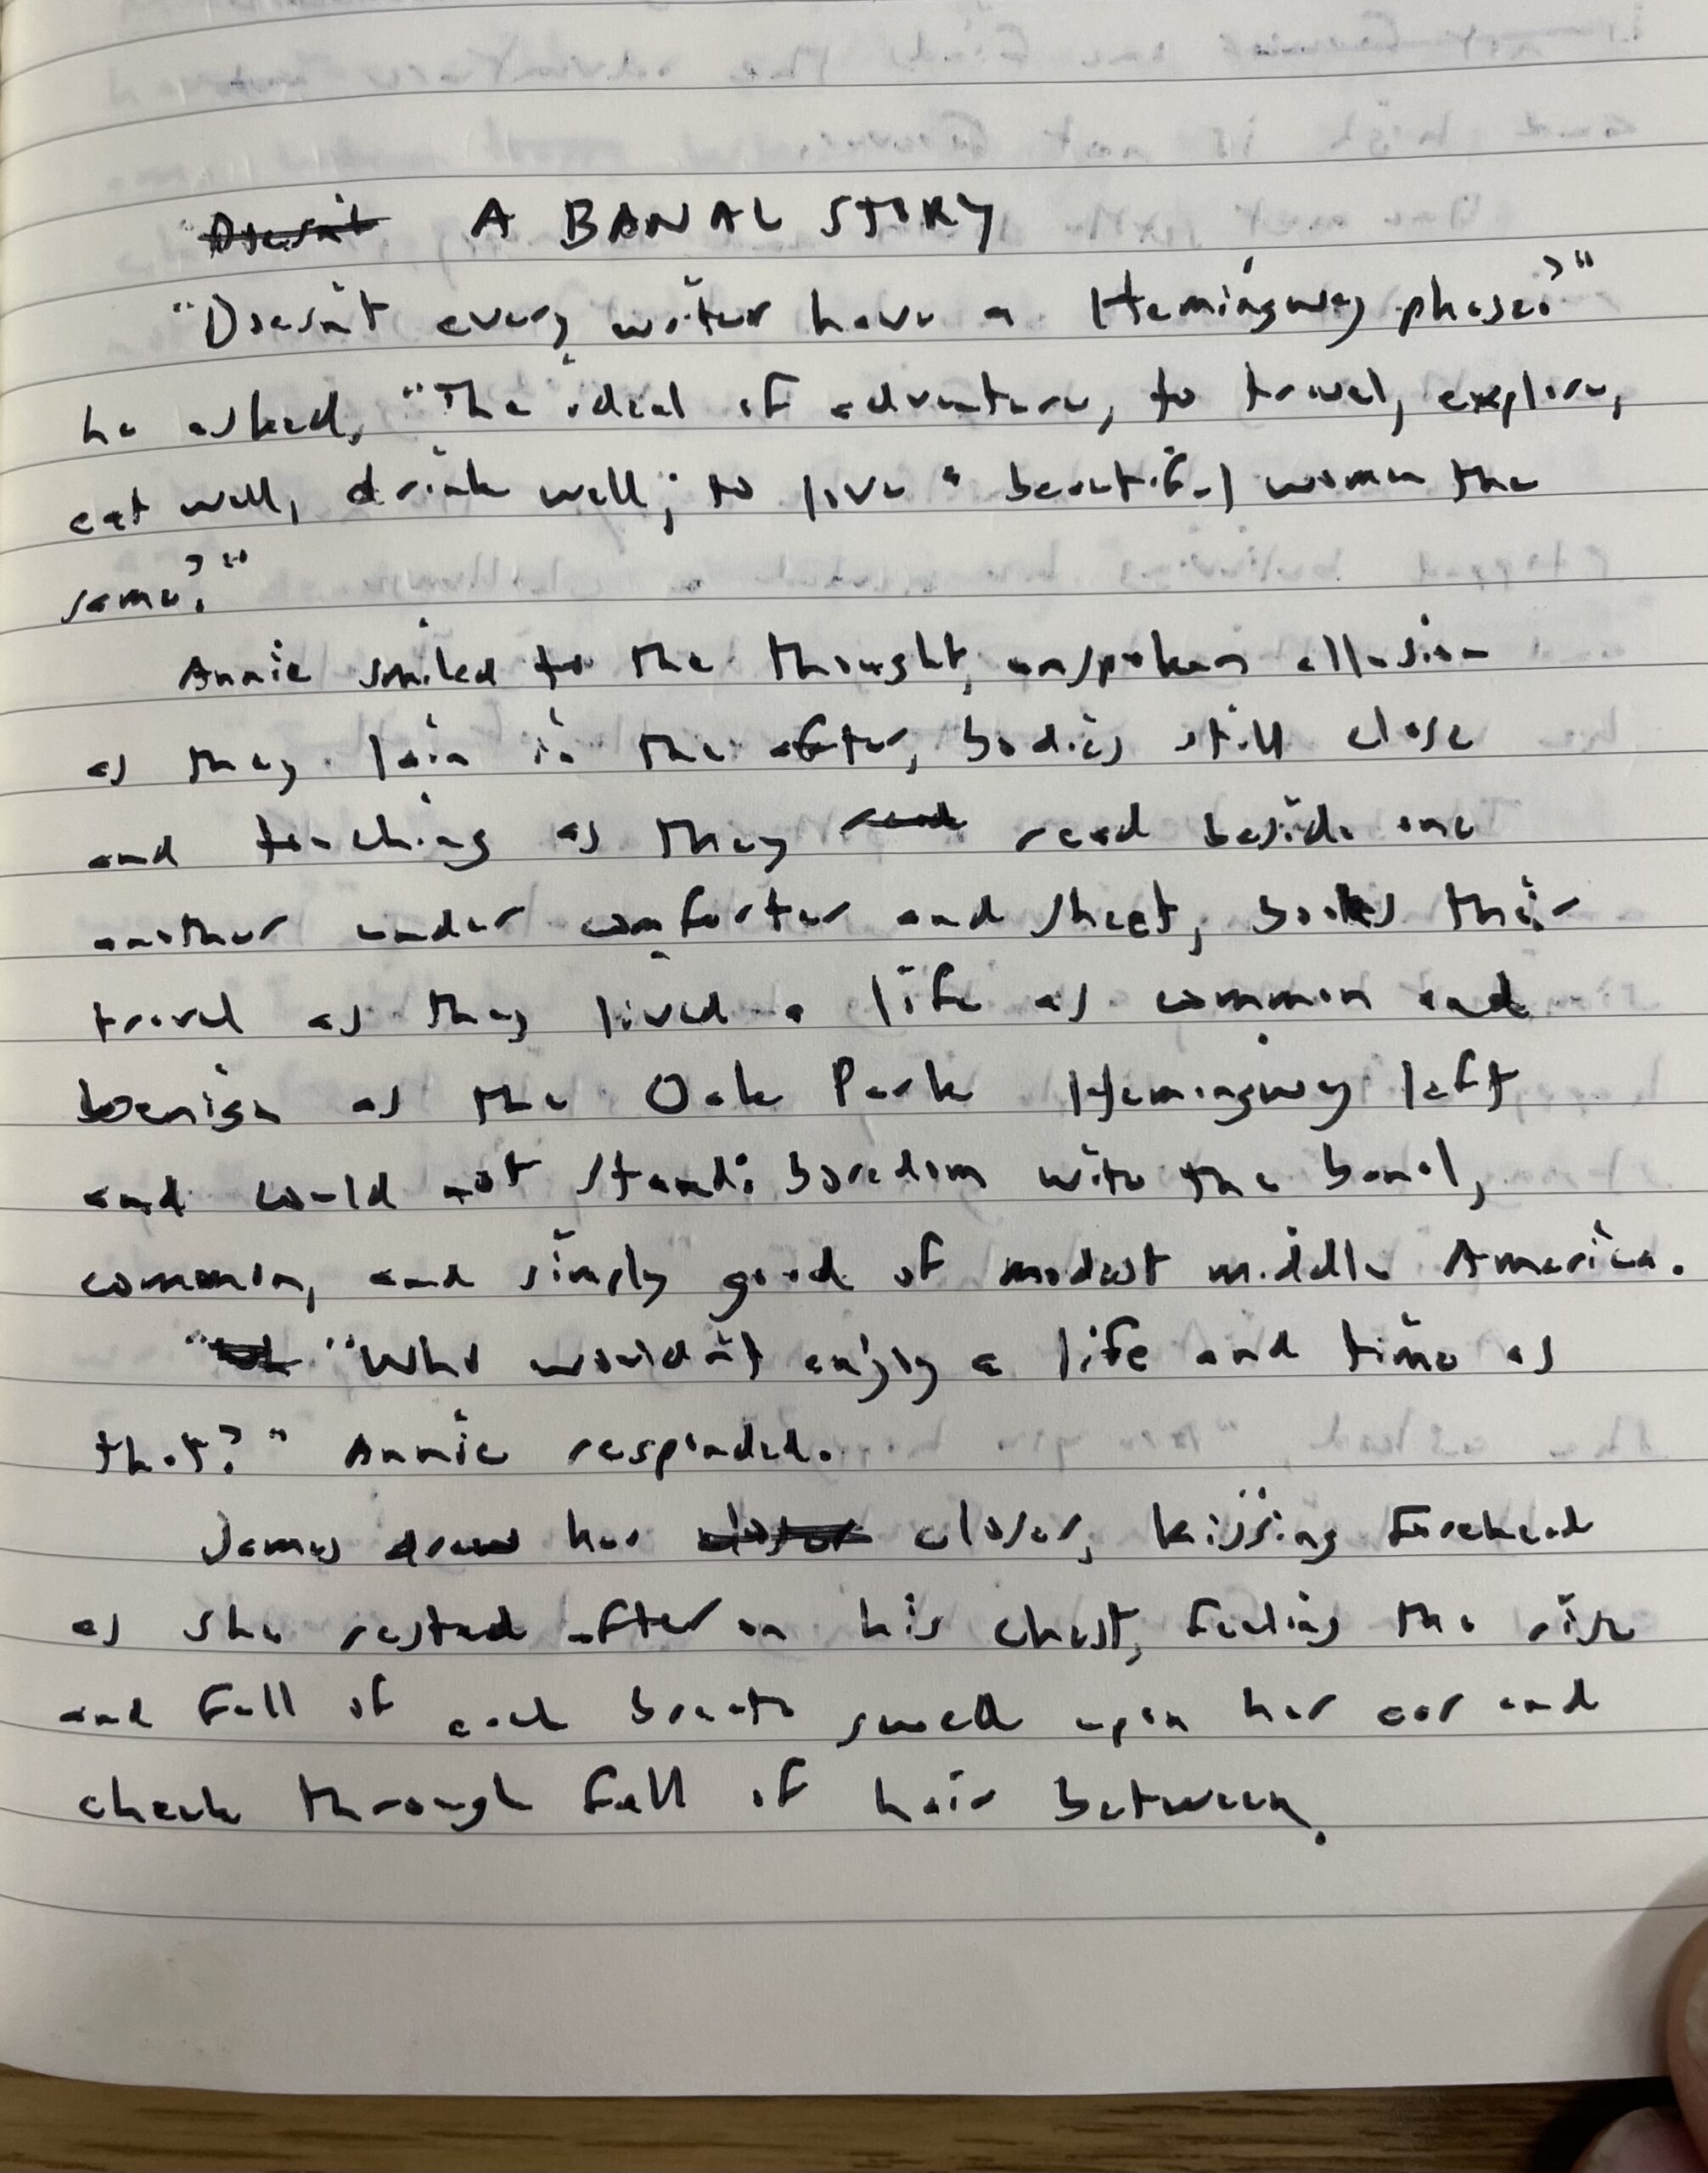 A BANAL STORY
"Doesn't every writer have a Hemingway phase?"
he asked, "The ideal of adventure, to travel, explore,
eat well, drink well; to love a beautiful woman the
same?"
Annie smiled to the thought, unspoken allusion
as they lain in the after, bodies still close
and touching as they read read beside one
another under comforter and sheet, books their
travel as they lived a life as common and
benign as the Oak Park Hemingway left
and could not stand; boredom with the banal,
common, and simply good of modest middle America.
"Who wouldn't enjoy a life and time as
that?" Annie responded.
James drew her closer closer, kissing forehead
as she rested after on his chest, feeling the rise
and fall of each breath swell upon her ear and
cheek through fall of hair between.